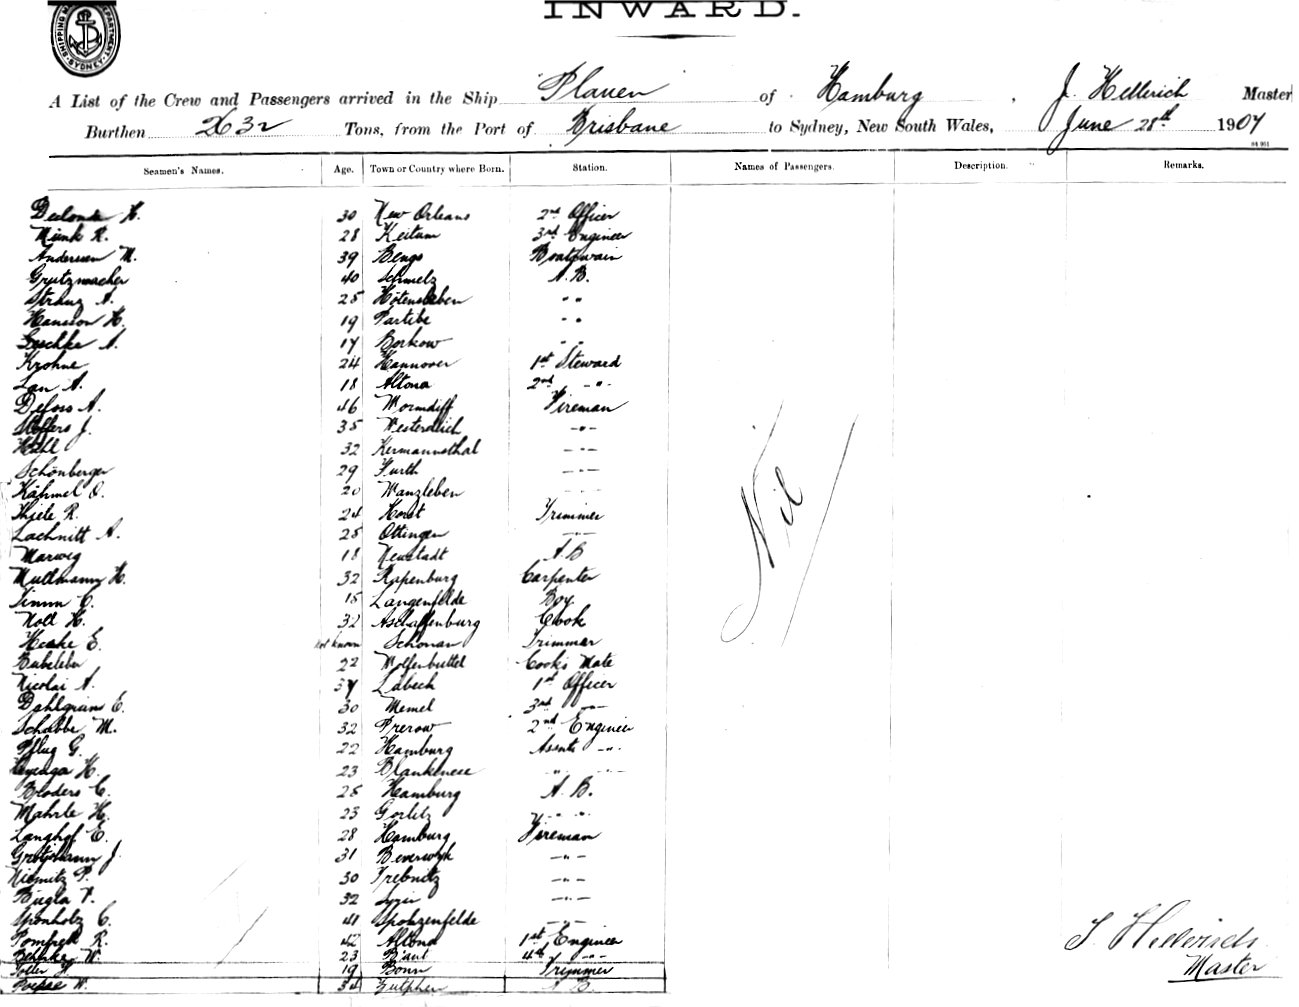 INWARD.
SHIPPING DEPARTMENT SYDNEY
A List of the Crew and Passengers arrived in the Ship Planen of Hamburg, J. Hellerich Master
Burthen 2632 Tons, from the Port of Brisbane to Sydney, New South Wales, June 28th 1907
Seamen's Names. Age. Town or Country where Born. Station. Names of Passengers. Description. Remarks.
H. 30 New Orleans 2nd Officer
Münk R. 28 Keitum 3rd Engineer
Andersen M. 39 Boatswain
Grützmacher 40 Schmelz A. B.
Stranz A. 25 Hötensleben " "
Hansson H. 19 " "
Geschke A. 17 Borkow " "
Krohne 24 Hannover 1st Steward
Lau A. 18 Altona 2nd -"-
Defoss A. 46 Fireman
Stoffers J. 35 -"-
32 Kermannsthal -"-
Schönberger 29 Furth -"-
Kähmel O. 20 Wanzleben
Thiele R. 24 Horst Trimmer
Lachnitt A. 25 Ottingen -"-
Marweg 18 Neustadt A. B
Mullmann H. 32 Papenburg Carpenter
Timm C. 15 Langenfelde Boy
Noll H. 32 Aschaffenburg Cook
Heske E. not known Schonau Trimmer
22 Wolfenbuttel Cook's Mate
Nicolai A. 37 Lübeck 1st Officer
Dahlgrün E. 30 Memel 3rd -"-
Schabbe M. 32 Prerow 2nd Engineer
Pflug G. 22 Hamburg Assnt -"-
H. 23 Blankenese " -"-
Broders C. 25 Hamburg A. B.
Mahrle H. 23 Gorlitz " "
Langhof E. 28 Hamburg Fireman
Grotjohann J. 31 Beverwyk -"-
Niemitz P. 30 Trebnitz -"-
Bugla V. 32 -"-
Sponholz C. 41 Spohzenfelde -"-
R. 42 Altona 1st Engineer
Behnke W. 23 4th -"-
19 Bonn Trimmer
W. 34 Zutphen A B.
Nil
J. Hellerich
Master